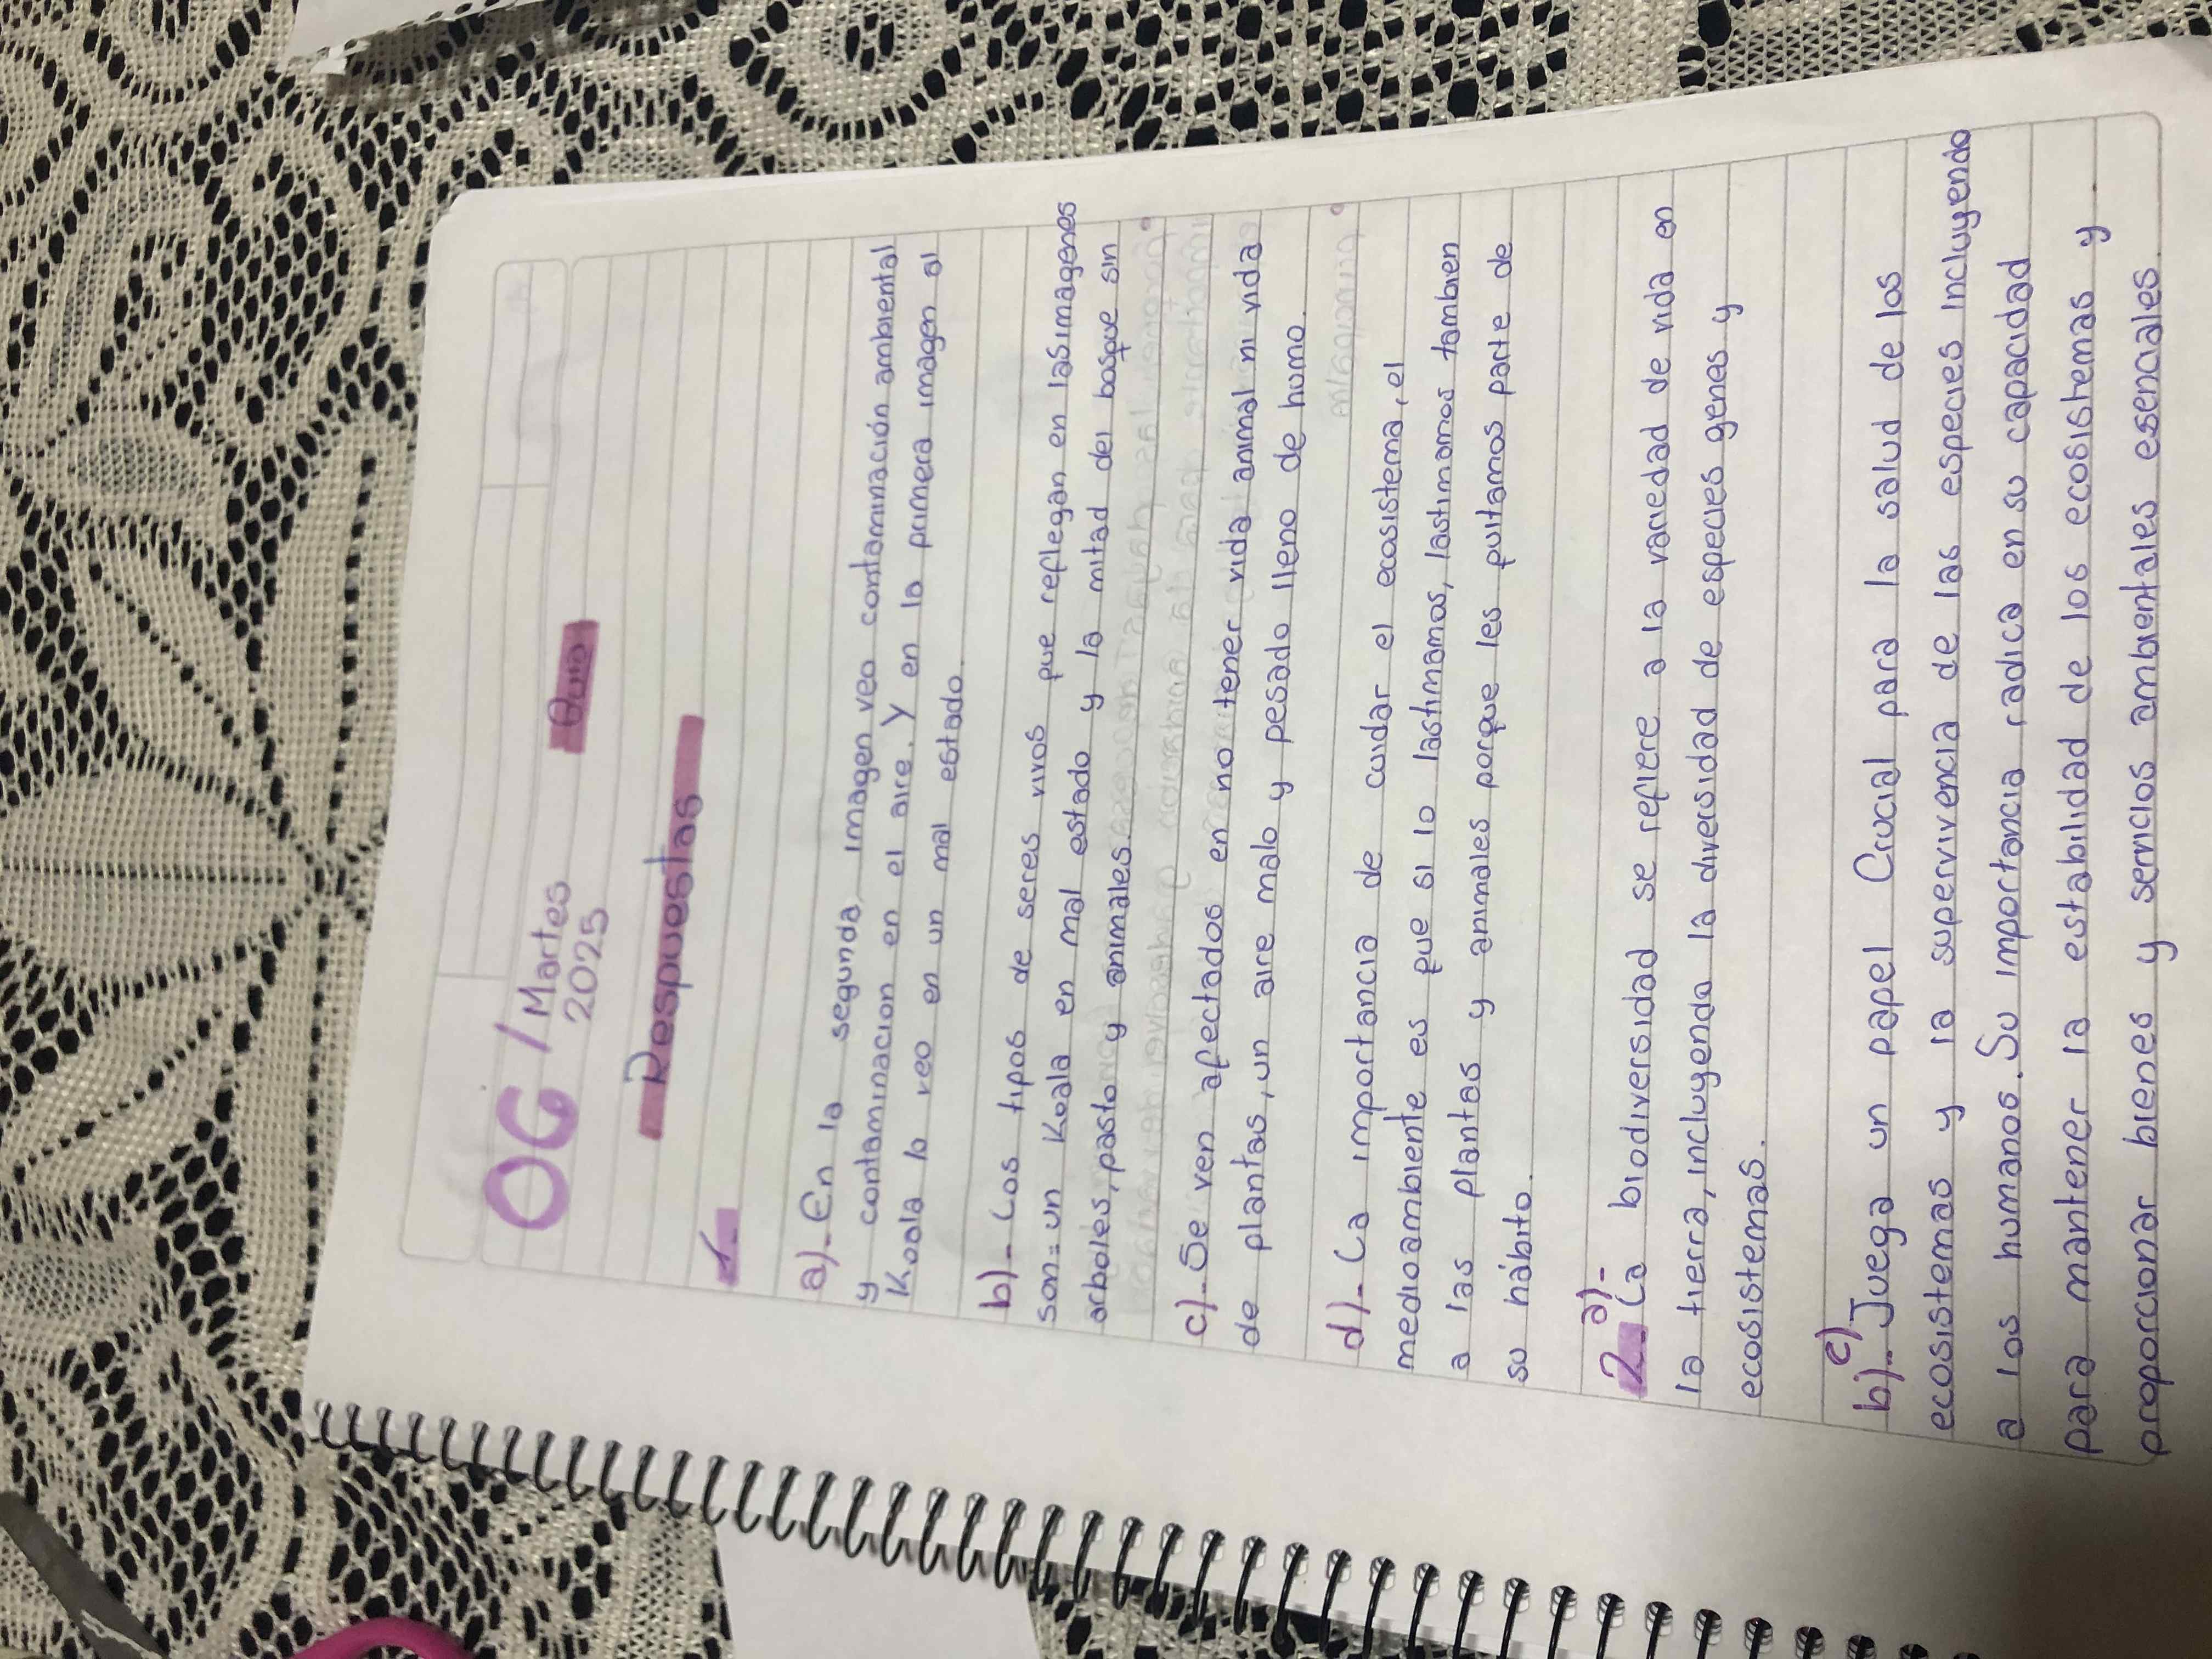 06 / Martes
2025
Respuestas
1-
a)- En la segunda imagen veo contaminación ambiental
y contaminacion en el aire. Y en la primera imagen al
Koala lo veo en un mal estado.
b)- Los tipos de seres vivos que reflegan en las imagenes
son= un Koala en mal estado y la mitad del bosque sin
arboles, pasto y animales.
c)- Se ven afectados en no tener vida animal ni vida
de plantas, un aire malo y pesado lleno de humo.
d)- La importancia de cuidar el ecosistema, el
medioambiente es que si lo lastimamos, lastimamos tambien
a las plantas y animales porque les quitamos parte de
su hábito.
2- a)- La biodiversidad se refiere a la variedad de vida en
la tierra, incluyenda la diversidad de especies genes y
ecosistemas.
c)
b)- Juega un papel Crucial para la salud de los
ecosistemas y la supervivencia de las especies incluyendo
a los humanos. Su importancia radica en su capacidad
para mantener la estabilidad de los ecosistemas y
proporcionar bienes y servicios ambientales esenciales.